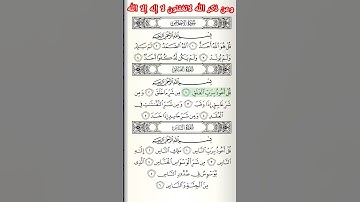 ومن ذكر الله لاتغفلون لا إله إلا الله
سُورَةُ الإِخْلَاصِ
بِسْمِ اللَّهِ الرَّحْمَٰنِ الرَّحِيمِ
قُلْ هُوَ اللَّهُ أَحَدٌ ١ اللَّهُ الصَّمَدُ ٢ لَمْ يَلِدْ
وَلَمْ يُولَدْ ٣ وَلَمْ يَكُن لَّهُ كُفُوًا أَحَدٌ ٤
سُورَةُ الفَلَقِ
بِسْمِ اللَّهِ الرَّحْمَٰنِ الرَّحِيمِ
قُلْ أَعُوذُ بِرَبِّ الْفَلَقِ ١ مِن شَرِّ مَا خَلَقَ ٢ وَمِن
شَرِّ غَاسِقٍ إِذَا وَقَبَ ٣ وَمِن شَرِّ النَّفَّٰثَٰتِ فِي
الْعُقَدِ ٤ وَمِن شَرِّ حَاسِدٍ إِذَا حَسَدَ ٥
سُورَةُ النَّاسِ
بِسْمِ اللَّهِ الرَّحْمَٰنِ الرَّحِيمِ
قُلْ أَعُوذُ بِرَبِّ النَّاسِ ١ مَلِكِ النَّاسِ ٢ إِلَٰهِ
النَّاسِ ٣ مِن شَرِّ الْوَسْوَاسِ الْخَنَّاسِ ٤ الَّذِي
يُوَسْوِسُ فِي صُدُورِ النَّاسِ ٥
مِنَ الْجِنَّةِ وَالنَّاسِ ٦